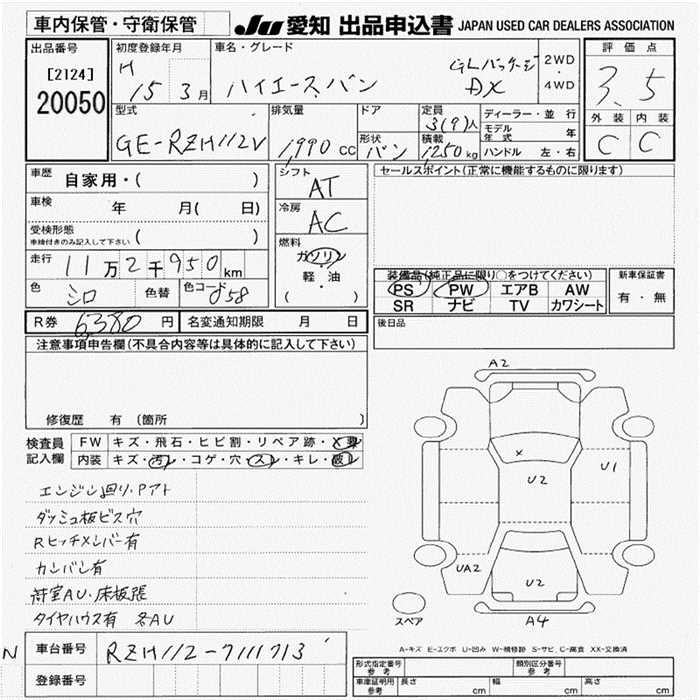 車内保管・守衛保管 JU 愛知 出品申込書 JAPAN USED CAR DEALERS ASSOCIATION
出品番号
[2124]
20050
初度登録年月
H 15 3月
車名・グレード
ハイエース バン
GLパッケージ
DX
2WD
・
4WD
評価点
3.5
外装 内装
C C
型式
GE-RZH112V
排気量
1,990 CC
ドア
形状
バン
定員
3(9)人
積載
1,250kg
ディーラー・並行
モデル年式 年
ハンドル 左・右
車歴 自家用・( )
車検 年 月( 日)
受検形態
車検付きのみ記入して下さい ( )
走行 11万2千950km
色 シロ 色替 色コード 058
R券 6380 円 名変通知期限 月 日
シフト
AT
冷房
AC
燃料
ガソリン
軽・油
( )
セールスポイント(正常に機能するものに限ります)
装備品(純正品に限り○をつけてください)
PS PW エアB AW
SR ナビ TV カワシート
新車保証書
有・無
後日品
注意事項申告欄(不具合内容等は具体的に記入して下さい)
修復歴 有 (箇所 )
検査員記入欄
FW キズ・飛石・ヒビ割・リペア跡・X要
内装 キズ・汚レ・コゲ・穴・スレ・キレ・破レ
エンジン回り・Pアト
ダッシュ板ビス穴
Rヒッチメンバー有
カンバン有
荷室AU・床板張
タイヤハウス有 各AU
A2
X
U2
U1
UA2
U2
A4
スペア
A-キズ E-エクボ U-凹み W-補修跡 S-サビ C-腐食 XX-交換済
N 車台番号 RZH112-7111713
登録番号
形式指定番号
参考
類別区分番号
参考
車庫証明用
参考
長さ cm 幅 cm 高さ cm